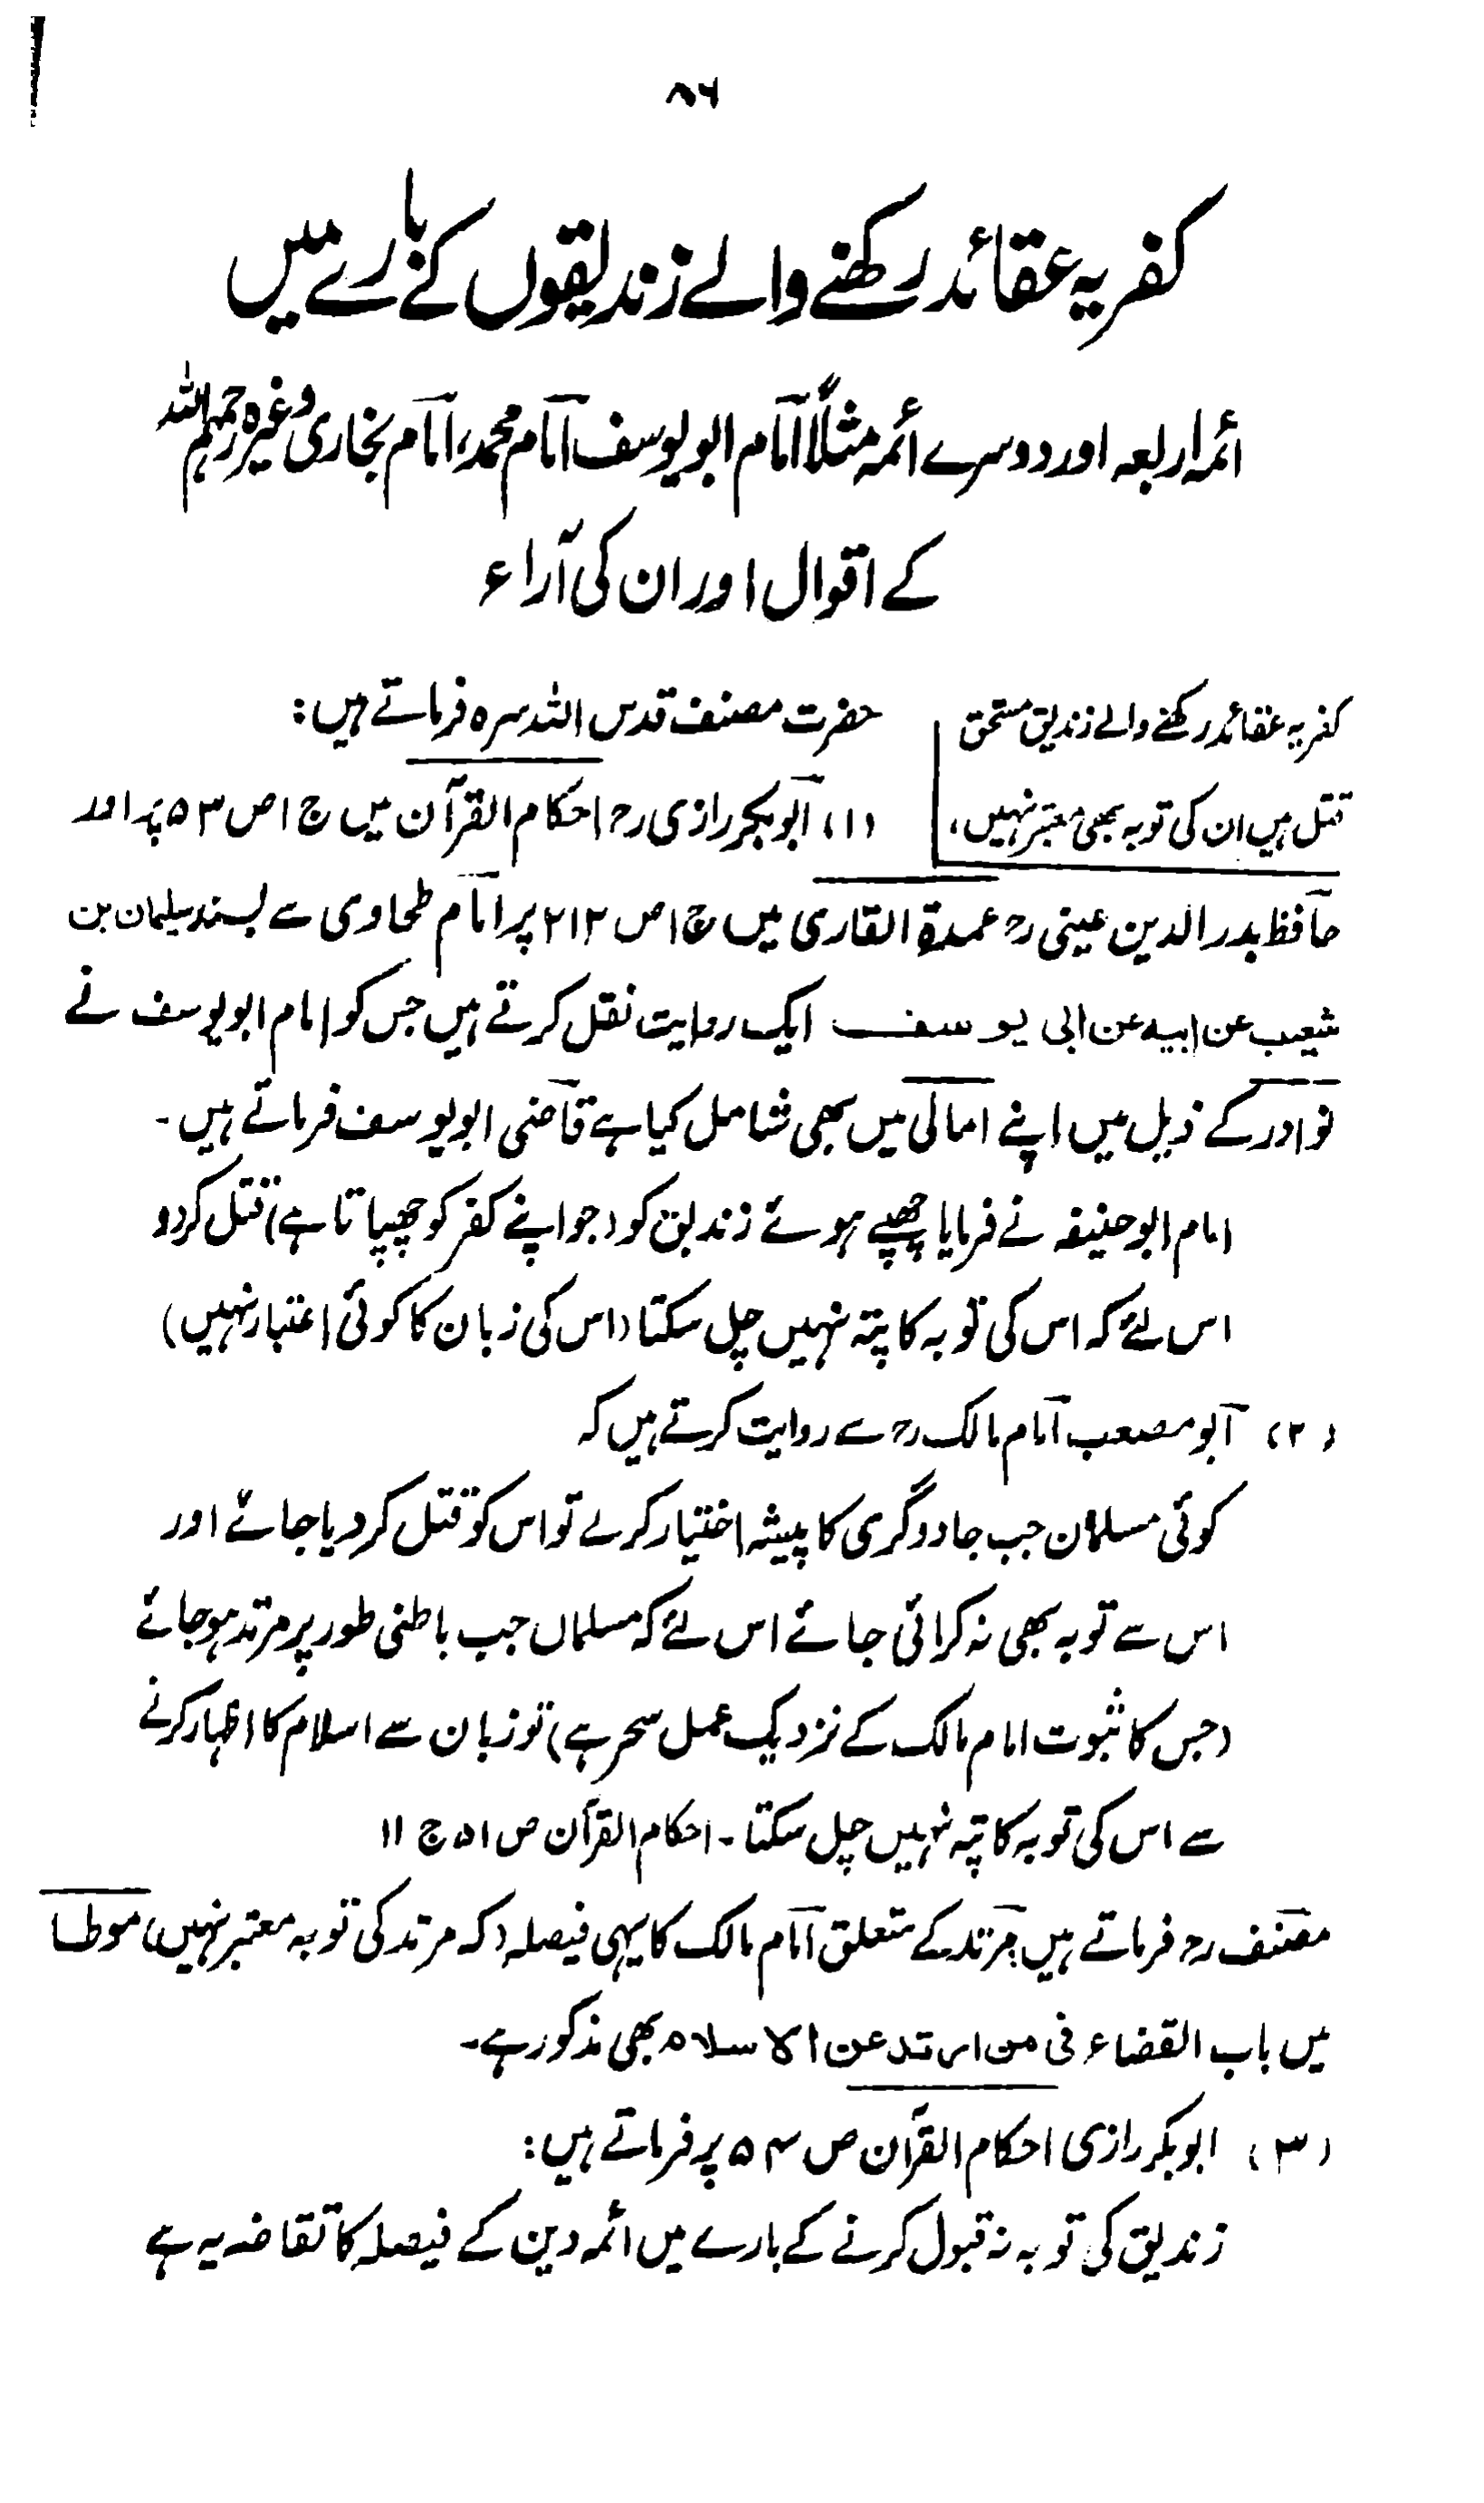 ۸۶
کفریہ عقائد رکھنے والے زندیقوں کے بارے میں
ائمہ اربعہ اور دوسرے ائمہ مثلاً امام ابو یوسف امام محمد، امام بخاری وغیرہ رحمہم اللہ
کے اقوال اور ان کی آراء
کفریہ عقائد رکھنے والے زندیق مستحق
قتل ہیں ان کی توبہ بھی معتبر نہیں،
حضرت مصنف قدس اللہ سرہ فرماتے ہیں:
(۱) ابوبکر رازی رح احکام القرآن میں ج ۱ ص ۵۳ پر اور
حافظ بدر الدین عینی رح عمدة القاری میں ج ۱ ص ۲۱۲ پر امام طحاوی سے بسند سلیمان بن
شعیب عن ابیہ عن ابی یوسف ایک روایت نقل کرتے ہیں جس کو امام ابو یوسف نے
نوادر کے ذیل میں اپنے امالی میں بھی شامل کیا ہے قاضی ابو یوسف فرماتے ہیں۔
امام ابو حنیفہ نے فرمایا چھپے ہوئے زندیق کو (جو اپنے کفر کو چھپاتا ہے) قتل کردو
اس لئے کہ اس کی توبہ کا پتہ نہیں چل سکتا (اس کی زبان کا کوئی اعتبار نہیں)
(۲) ابو مصعب امام مالک رح سے روایت کرتے ہیں کہ
کوئی مسلمان جب جادوگری کا پیشہ اختیار کرلے تو اس کو قتل کر دیا جائے اور
اس سے توبہ بھی نہ کرائی جائے اس لئے کہ مسلماں جب باطنی طور پر مرتد ہو جائے
(جس کا ثبوت امام مالک کے نزدیک عمل سحر ہے) تو زبان سے اسلام کا اظہار کرنے
سے اس کی توبہ کا پتہ نہیں چل سکتا۔ احکام القرآن ص ۵۱ ج ۱۱
مصنف رح فرماتے ہیں: مرتد کے متعلق امام مالک کا یہی فیصلہ (کہ مرتد کی توبہ معتبر نہیں) موطا
میں باب القضاء فی من ارتد عن الاسلام بھی مذکور ہے۔
(۳) ابوبکر رازی احکام القرآن ص ۵۴ پر فرماتے ہیں:
زندیق کی توبہ نہ قبول کرنے کے بارے میں ائمہ دین کے فیصلہ کا تقاضہ یہ ہے